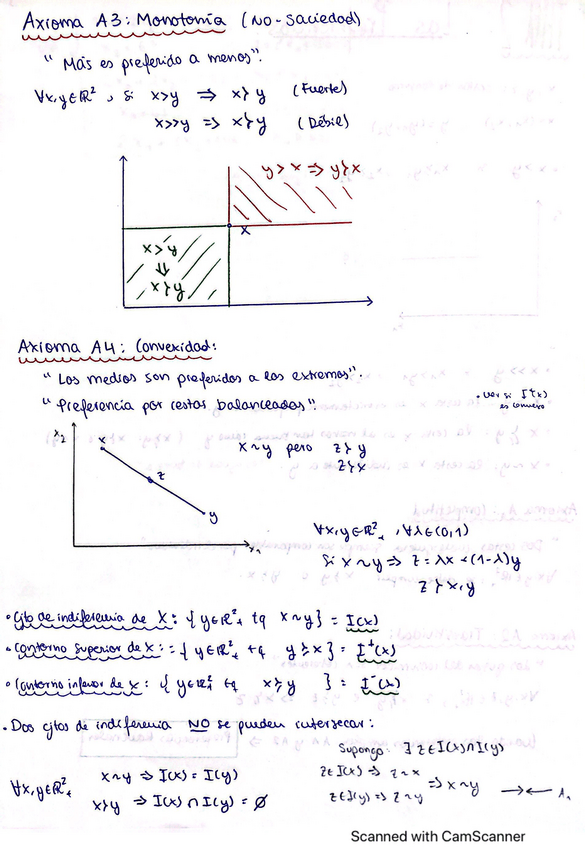 Axioma A3: Monotonía (No-Saciedad)
"Más es preferido a menos".
∀x,y∈ℝ², si x>y ⇒ x≻y (Fuerte)
x>>y ⇒ x≻y (Débil)
y > x ⇒ y≻x
x
x>y
⇓
x≻y
Axioma A4: Convexidad:
"Los medios son preferidos a los extremos".
"Preferencia por cestas balanceadas".
• Ver si I⁺(x)
es convexo
x₂
x
z
y
x₁
x~y pero z≻y
z≻x
∀x,y∈ℝ²₊, ∀λ∈(0,1)
Si x~y ⇒ z = λx + (1-λ)y
z≻x,y
• Cjto de indiferencia de x: { y∈ℝ²₊ tq x~y} = I(x)
• Contorno Superior de x: = { y∈ℝ²₊ tq y≻x} = I⁺(x)
• Contorno inferior de x: { y∈ℝ²₊ tq x≻y } = I⁻(x)
• Dos cjtos de indiferencia NO se pueden intersecar:
Supongo: ∃ z∈I(x)∩I(y)
∀x,y∈ℝ²₊ x~y ⇒ I(x) = I(y)
x≻y ⇒ I(x) ∩ I(y) = ∅
z∈I(x) ⇒ z~x
z∈I(y) ⇒ z~y
⇒ x~y →← A₁
Scanned with CamScanner